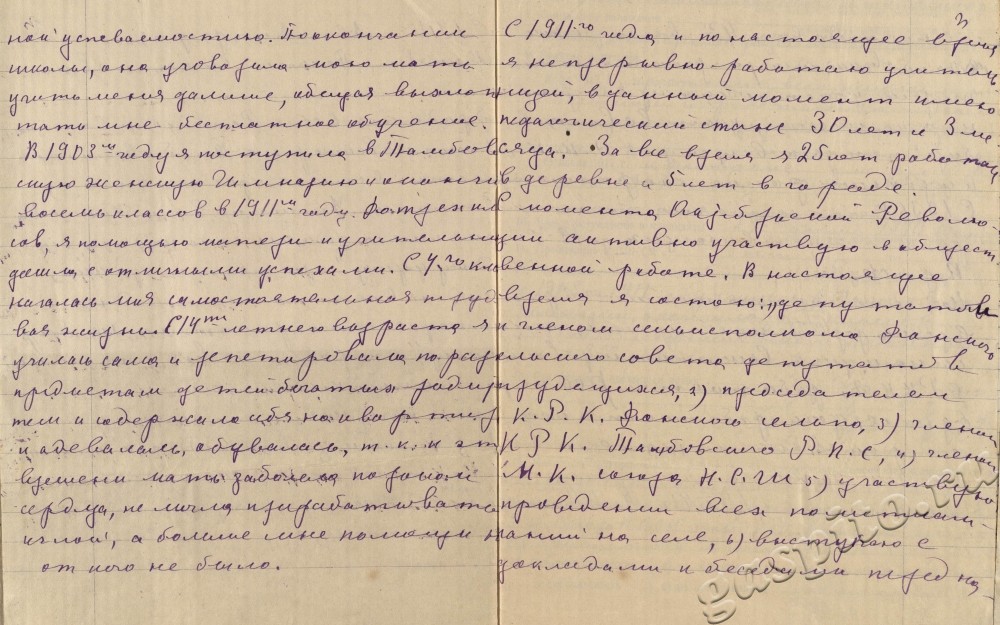 ной успеваемостью. По окончании
школы, она уговорила мою мать
учить меня дальше, обещая выхлопо-
тать мне бесплатное обучение.
В 1903м году я поступила в Тамбов
скую женскую Гимназию и окончи
восемь классов в 1911м году.
сов, я помощью матери и учительни
дошла с отличными успехами. С 4го кл
началась моя самостоятельная трудо
вая жизнь. С 14ти летнего возраста я
училась сама и репетировала по разн
предметам детей богатых родит
тем и содержала себя на квартире
и одевалась, обувалась, т.к. к эт
времени мать заболела пороком
сердца, не могла прирабатывать
иглой, а больше мне помощи
от кого не было.
3
С 1911го года и по настоящее время
я непрерывно работаю учитель
ницей, в данный момент имею
педагогический стаж 30 лет и 3 ме-
сяца. За все время я 25 лет работаю
в деревне и 5 лет в городе.
С момента Октябрьской Револю-
ции активно участвую в общест
венной работе. В настоящее
время я состою: 1) депутатом
и членом сельисполкома
сельского совета депутатов
трудящихся, 2) председателем
К.Р.К. сельпо, 3) членом
К Р К. Тамбовского Р.П.С, 4) членом
М.К. союза Н.С.Ш 5) участвую
проведении всех по
на селе, 6) выступаю с
докладами и беседами перед на-
gaspito.ru